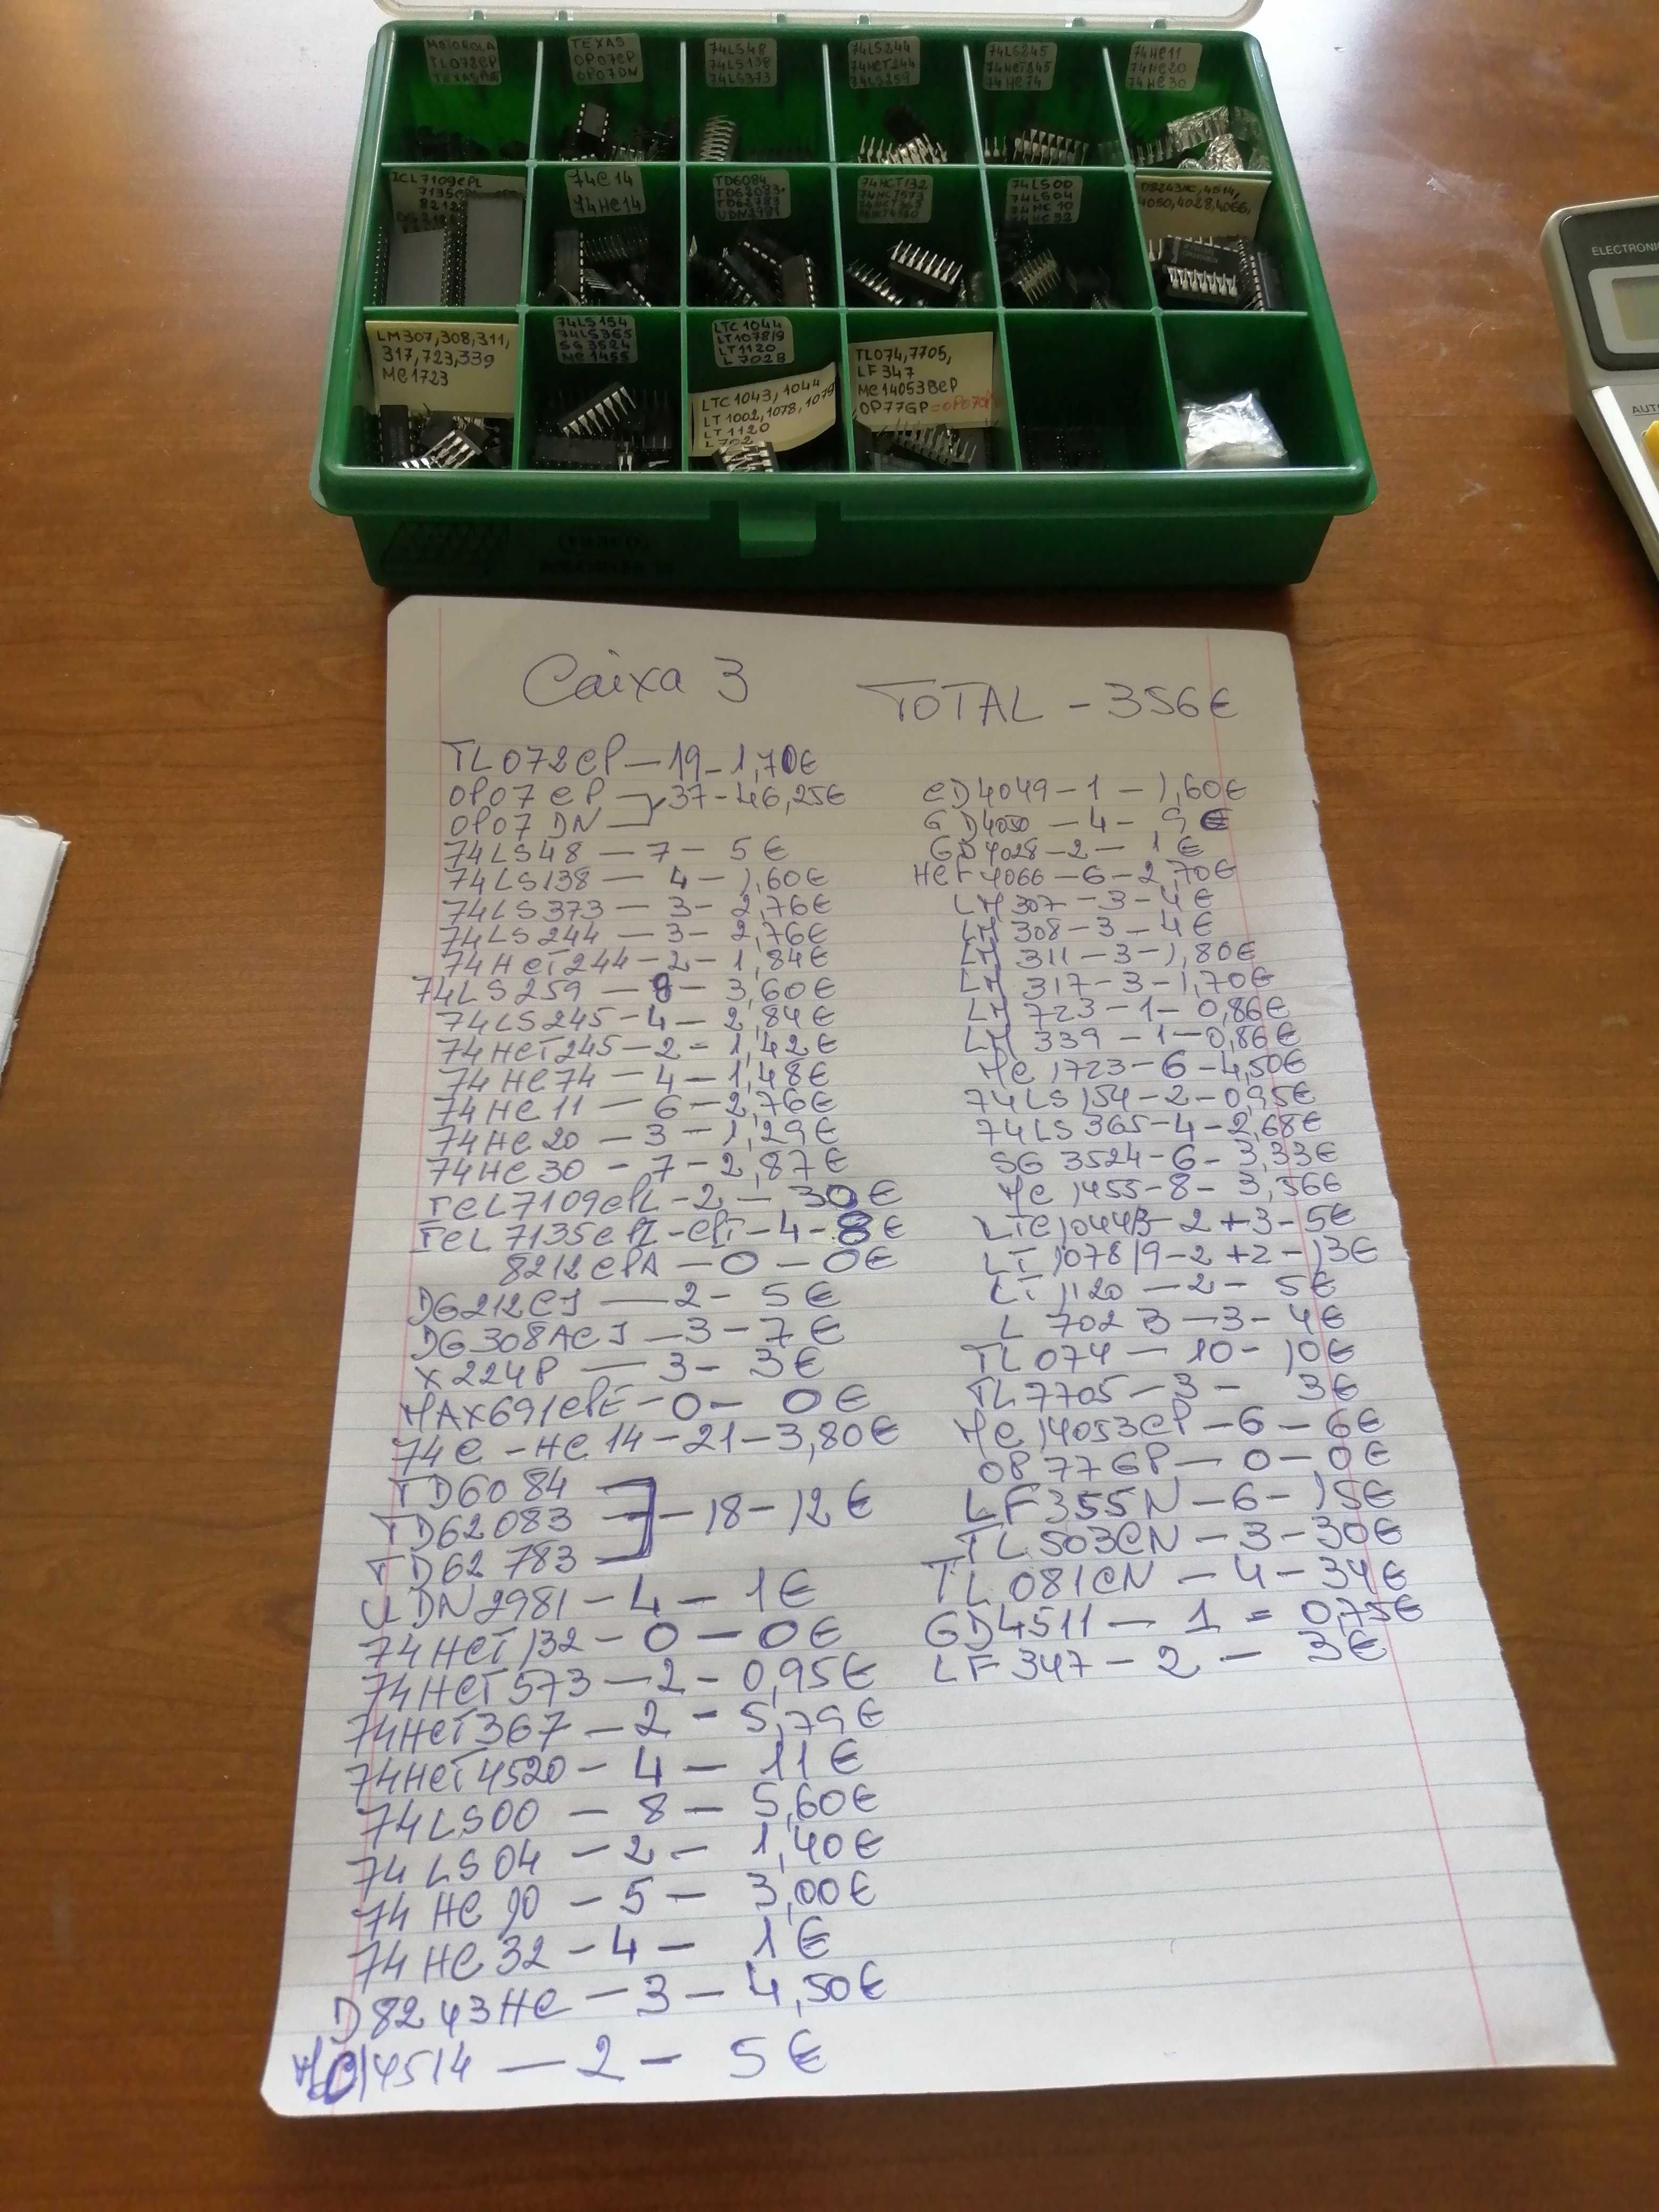 MOTOROLA
TL072CP
TEXAS
OP07CP
OP07DN
74LS48
74LS138
74LS373
74LS244
74HCT244
74LS259
74LS245
74HCT245
74HC74
74HC11
74HC20
74HC30
ICL7109CPL
7135CPL
8212
74C14
74HC14
TD6084
TD62083
TD62783
UDN2981
74HCT132
74HCT573
74LS00
74LS04
74HC10
74HC32
D8243HC, 4514,
4050, 4028, 4066,
LM307, 308, 311,
317, 723, 339
MC1723
74LS154
74LS365
SG3524
MC1455
LTC1044
LT1078/9
LT1120
L702B
LTC1043, 1044
LT1002, 1078, 1079
LT1120
L702
TL074, 7705,
LF347
MC14053BCP
OP77GP=OP07
ELECTRONIC
AUT
Caixa 3
TOTAL - 356€
TL072CP - 19 - 1,70€
OP07 CP
OP07 DN - 37 - 46,25€
74LS48 - 7 - 5€
74LS138 - 4 - 1,60€
74LS373 - 3 - 2,76€
74LS244 - 3 - 2,76€
74HCT244 - 2 - 1,84€
74LS259 - 8 - 3,60€
74LS245 - 4 - 2,84€
74HCT245 - 2 - 1,42€
74HC74 - 4 - 1,48€
74HC11 - 6 - 2,76€
74HC20 - 3 - 1,29€
74HC30 - 7 - 2,87€
ICL7109CPL - 2 - 30€
ICL7135CPI-CPI - 4 - 8€
8212CPA - 0 - 0€
DG212CJ - 2 - 5€
DG308ACJ - 3 - 7€
X224P - 3 - 3€
MAX691CPE - 0 - 0€
74C - HC14 - 21 - 3,80€
TD6084
TD62083 - 18 - 12€
TD62783
UDN2981 - 4 - 1€
74HCT132 - 0 - 0€
74HCT573 - 2 - 0,95€
74HCT367 - 2 - 5,79€
74HCT4520 - 4 - 11€
74LS00 - 8 - 5,60€
74LS04 - 2 - 1,40€
74HC10 - 5 - 3,00€
74HC32 - 4 - 1€
D8243HC - 3 - 4,50€
MC14514 - 2 - 5€
CD4049 - 1 - 1,60€
GD4050 - 4 - ,9€
GD4028 - 2 - 1€
HCF4066 - 6 - 2,70€
LM307 - 3 - 4€
LM308 - 3 - 4€
LM311 - 3 - 1,80€
LM317 - 3 - 1,70€
LM723 - 1 - 0,86€
LM339 - 1 - 0,86€
MC1723 - 6 - 4,50€
74LS154 - 2 - 0,95€
74LS365 - 4 - 2,68€
SG3524 - 6 - 3,33€
MC1455 - 8 - 3,36€
LTC1044/3 - 2+3 - 5€
LT1078/9 - 2+2 - 13€
LT1120 - 2 - 5€
L702B - 3 - 4€
TL074 - 10 - 10€
TL7705 - 3 - 3€
MC14053CP - 6 - 6€
OP77GP - 0 - 0€
LF355N - 6 - 15€
TL503CN - 3 - 30€
TL081CN - 4 - 34€
GD4511 - 1 = 0,75€
LF347 - 2 - 3€